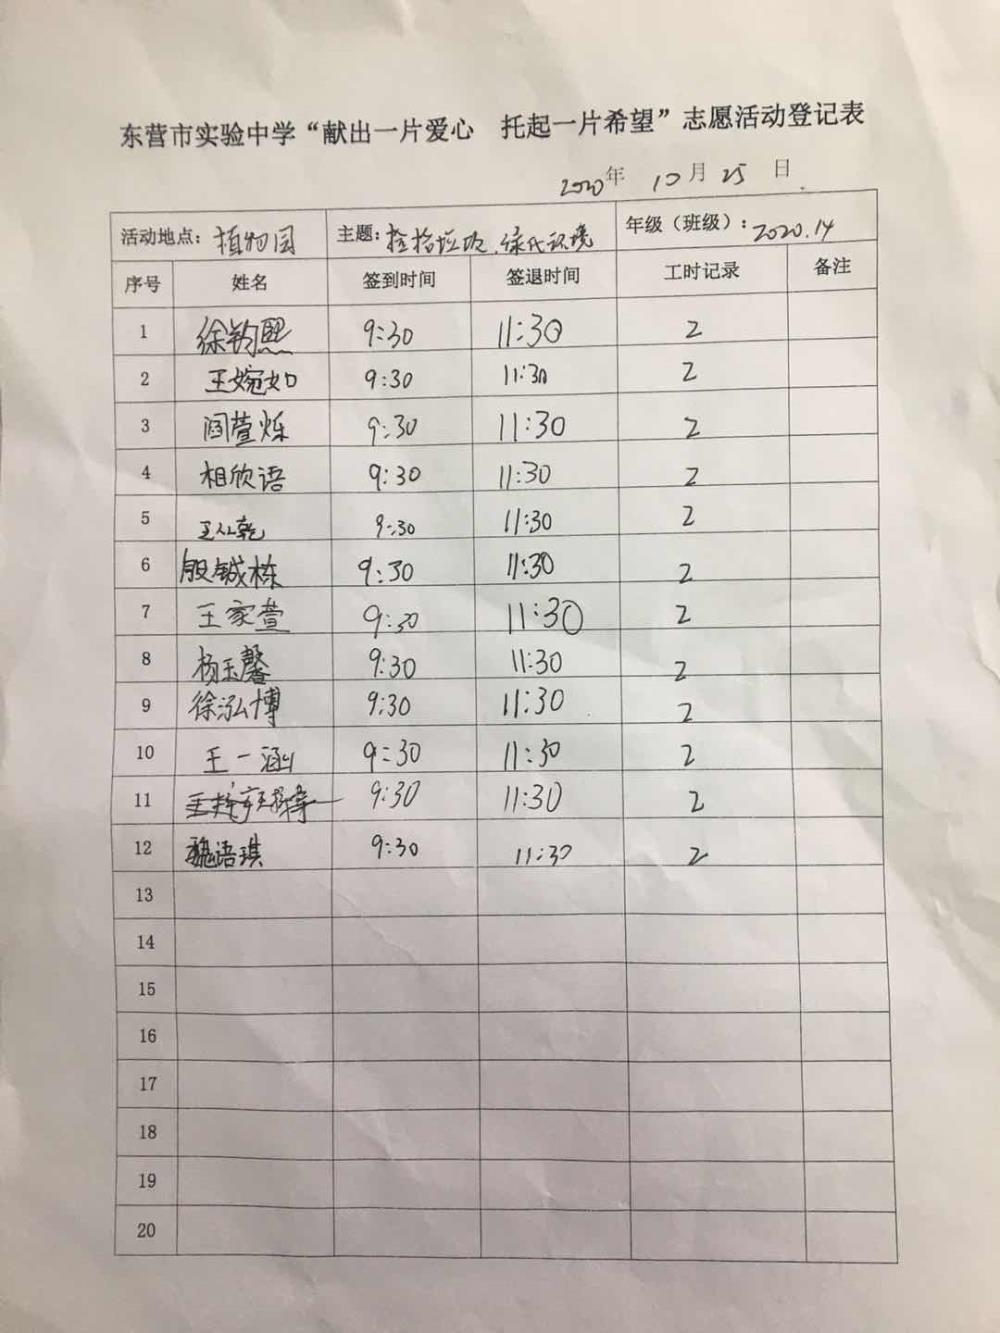 东营市实验中学“献出一片爱心 托起一片希望”志愿活动登记表
2020年 10月 25 日
活动地点：植物园 主题：捡拾垃圾.绿化环境 年级（班级）：2020.14
序号 姓名 签到时间 签退时间 工时记录 备注
1 徐钧熙 9:30 11:30 2
2 王婉如 9:30 11:30 2
3 阎萱烁 9:30 11:30 2
4 相欣语 9:30 11:30 2
5 9:30 11:30 2
6 殷铖栋 9:30 11:30 2
7 王家萱 9:30 11:30 2
8 杨玉馨 9:30 11:30 2
9 徐泓博 9:30 11:30 2
10 王一涵 9:30 11:30 2
11 9:30 11:30 2
12 魏语琪 9:30 11:30 2
13
14
15
16
17
18
19
20